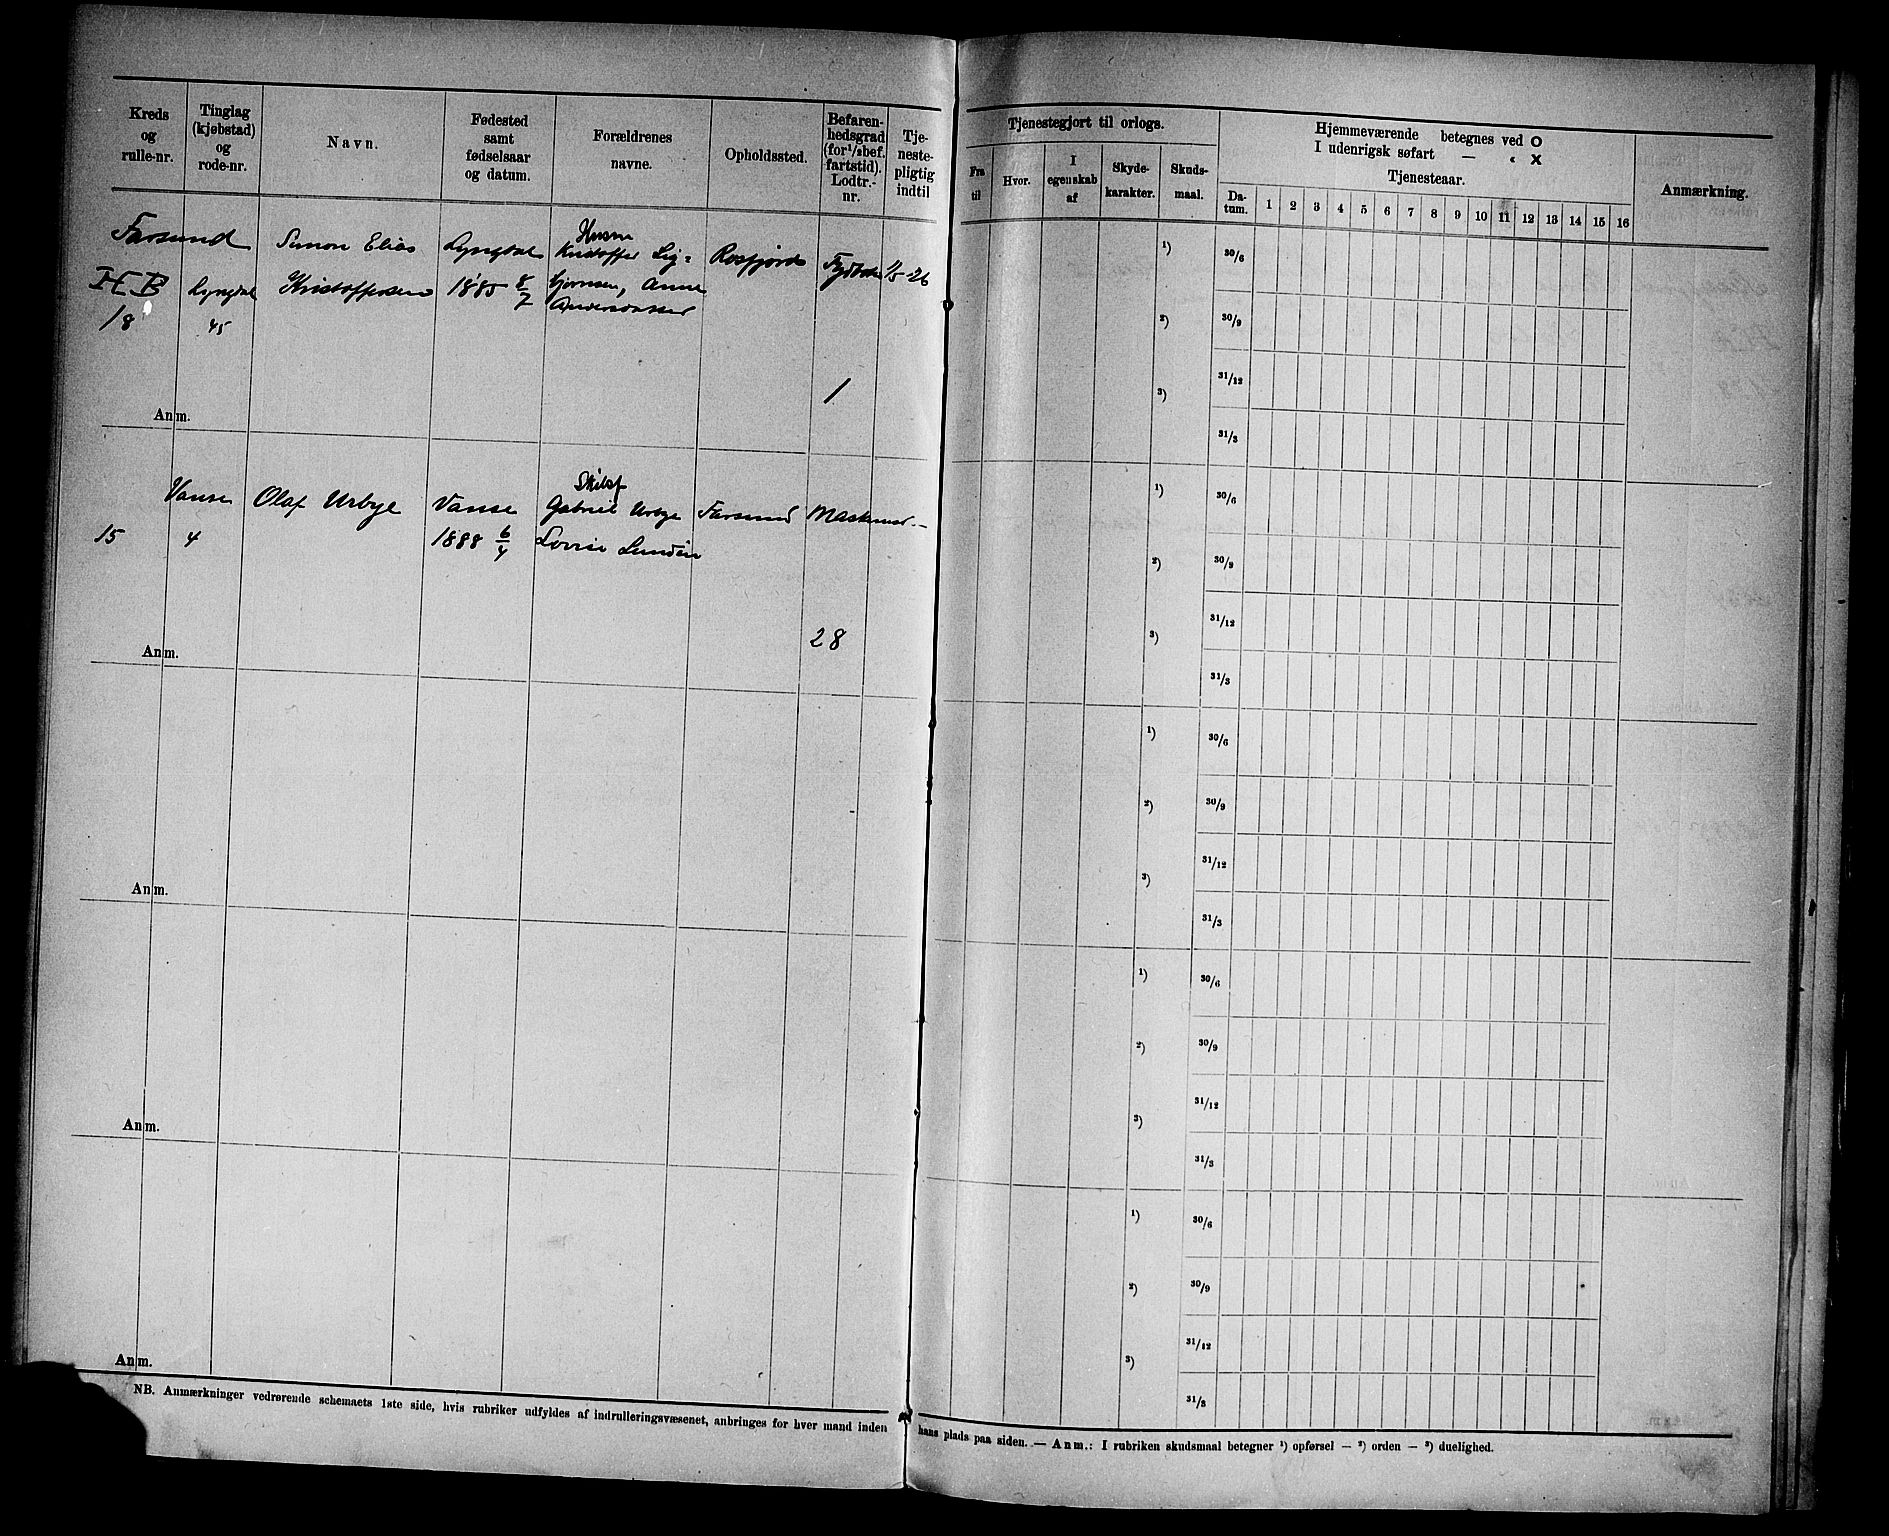 Kreds
og
rulle-nr.
Tinglag
(kjøbstad)
og
rode-nr.
Navn.
Fødested
samt
fødselsaar
og datum.
Forældrenes
navne.
Opholdssted.
Befaren-
hedsgrad
(for 1/3 bef.
fartstid).
Lodtr.-
nr.
Tje-
neste-
pligtig
indtil
Farsund
II C B
18
Lyngdal
45
Simon Elias
Kristoffersen
Lyngdal
1885 8/7
Husm
Kristoffer Sig-
bjørnsen, Anne
Andersdatter
Rosfjord
1/5 26
1
Anm.
15
Vanse
4
Olaf Urbye
Vanse
1888 6/4
Skibsf
Gabriel Urbye
Lovise Lundén
Farsund
Maskinist
28
Anm.
Anm.
Anm.
Anm.
NB. Anmærkninger vedrørende schemaets 1ste side, hvis rubriker udfyldes af indrulleringsvæsenet, anbringes for hver mand inden
Tjenestegjort til orlogs.
Fra
til
Hvor.
I
egenskab
af
Skyde-
karakter.
Skuds-
maal.
Hjemmeværende betegnes ved O
I udenrigsk søfart — « X
Tjenesteaar.
Da-
tum.
1 2 3 4 5 6 7 8 9 10 11 12 13 14 15 16
Anmærkning.
1) 30/6
2) 30/9
31/12
3)
31/3
1) 30/6
2) 30/9
31/12
3)
31/3
1) 30/6
2) 30/9
31/12
3)
31/3
1) 30/6
2) 30/9
31/12
3)
31/3
1) 30/6
2) 30/9
31/12
3)
31/3
hans plads paa siden. — Anm.: I rubriken skudsmaal betegner 1) opførsel — 2) orden — 3) duelighed.